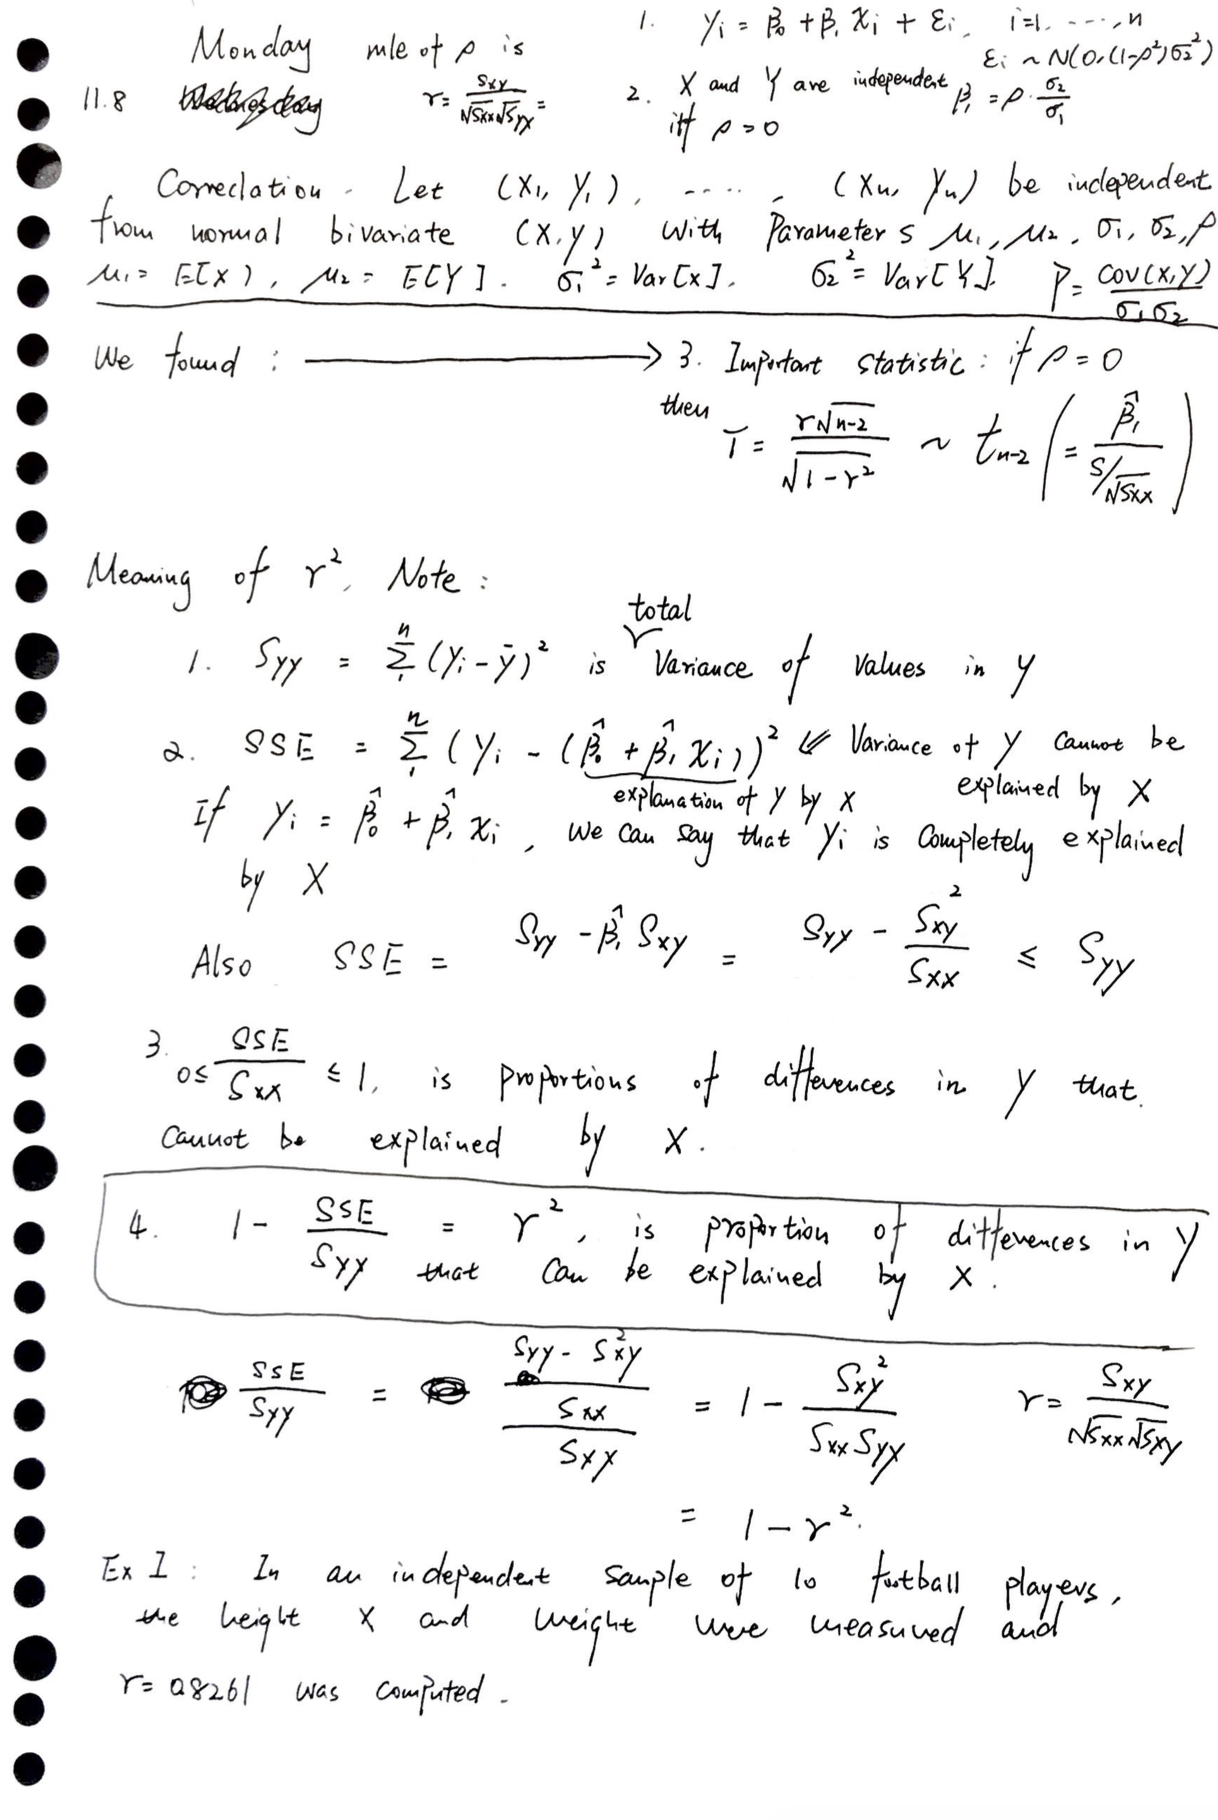 Monday mle of ρ is
11.8 r = Sxy / √Sxx √Syy =
1. Yi = β0 + β1 Xi + εi, i=1, ----, n
εi ~ N(0, (1-ρ²)σ2²)
2. X and Y are independent β1 = ρ · σ2/σ1
iff ρ = 0
Correclation - Let (X1, Y1), ----, (Xn, Yn) be independent
from normal bivariate (X, Y) with Parameters μ1, μ2, σ1, σ2, ρ
μ1 = E[X), μ2 = E[Y]. σ1² = Var[X]. σ2² = Var[Y]. ρ = cov(X,Y) / σ1σ2
We found : ⟶ 3. Important statistic : if ρ = 0
then T = r√n-2 / √1-r² ~ tn-2 ( = β̂1 / S/√Sxx )
Meaning of r², Note :
total
1. Syy = Σ₁ⁿ (Yi - ȳ)² is Variance of values in y
2. SSE = Σ₁ⁿ (Yi - (β̂0 + β̂1 Xi))² ⇐ Variance of y cannot be
explanation of y by x explained by X
If Yi = β̂0 + β̂1 xi, we can say that yi is completely explained
by X
Also SSE = Syy - β̂1 Sxy = Syy - Sxy²/Sxx ≤ Syy
3. 0≤ SSE/Sxx ≤ 1, is proportions of differences in y that
cannot be explained by x.
4. 1 - SSE/Syy = r², is proportion of differences in y
that can be explained by x.
SSE/Syy = Syy - Sxy² / Sxx / Sxy = 1 - Sxy² / Sxx Syy r = Sxy / √Sxx √Sxy
= 1 - r².
Ex 1 : In an independent sample of 10 football players,
the height X and weight were measured and
r = 0.8261 was computed.